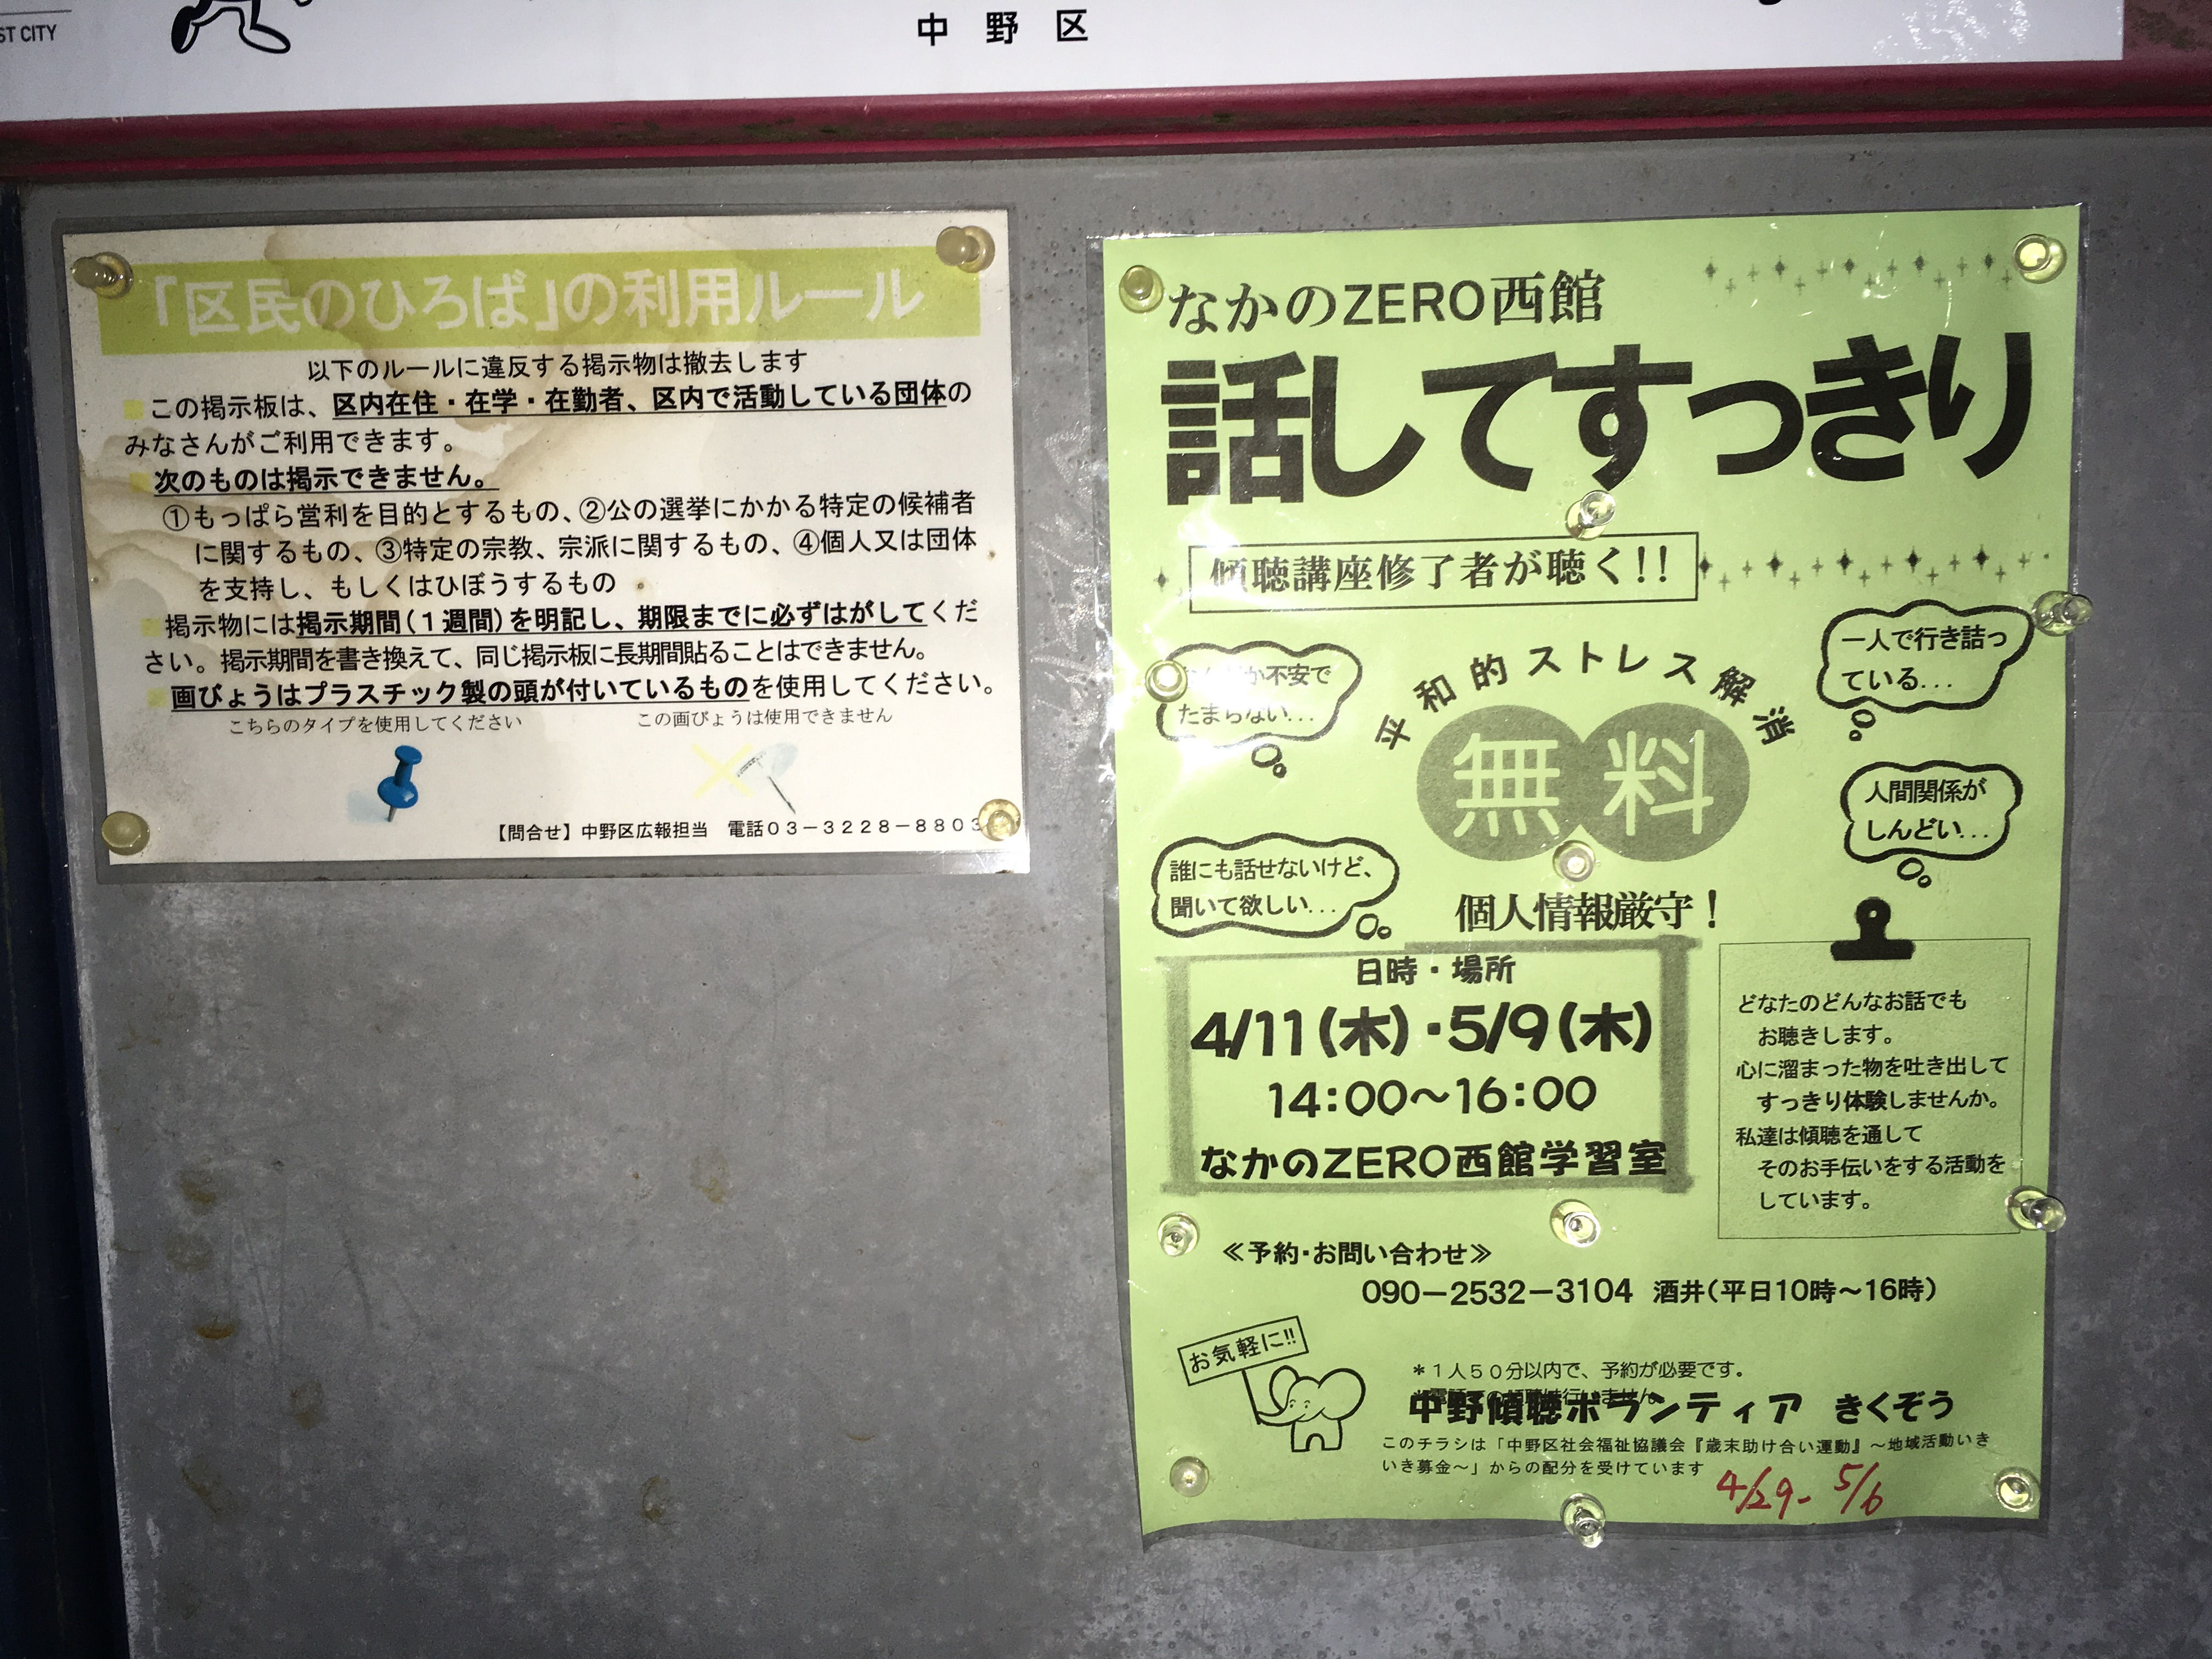 ST CITY
中野区
「区民のひろば」の利用ルール
以下のルールに違反する掲示物は撤去します
この掲示板は、区内在住・在学・在勤者、区内で活動している団体の
みなさんがご利用できます。
次のものは掲示できません。
①もっぱら営利を目的とするもの、②公の選挙にかかる特定の候補者
に関するもの、③特定の宗教、宗派に関するもの、④個人又は団体
を支持し、もしくはひぼうするもの
掲示物には掲示期間(1週間)を明記し、期限までに必ずはがしてくだ
さい。掲示期間を書き換えて、同じ掲示板に長期間貼ることはできません。
画びょうはプラスチック製の頭が付いているものを使用してください。
こちらのタイプを使用してください
この画びょうは使用できません
【問合せ】中野区広報担当 電話03-3228-8803
なかのZERO西館
話してすっきり
傾聴講座修了者が聴く!!
平和的ストレス解消
無料
か不安で
たまらない...
一人で行き詰っ
ている...
人間関係が
しんどい...
誰にも話せないけど、
聞いて欲しい...
個人情報厳守!
日時・場所
4/11(木)・5/9(木)
14:00~16:00
なかのZERO西館学習室
どなたのどんなお話でも
お聴きします。
心に溜まった物を吐き出して
すっきり体験しませんか。
私達は傾聴を通して
そのお手伝いをする活動を
しています。
≪予約・お問い合わせ≫
090-2532-3104 酒井(平日10時~16時)
お気軽に!!
*1人50分以内で、予約が必要です。
中野傾聴ボランティア きくぞう
このチラシは「中野区社会福祉協議会『歳末助け合い運動』~地域活動いき
いき募金~」からの配分を受けています
4/29- 5/6